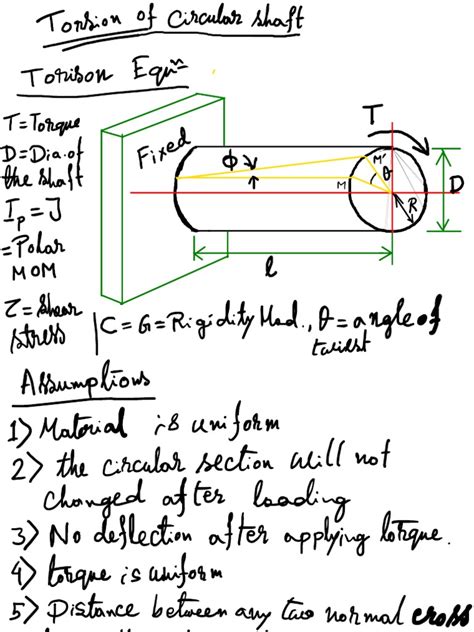 Torsion of Circular shaft
Torison Equⁿ
T
T=Torque
D=Dia.of
the shaft
Ip=J
=Polar
MOM
τ=Shear
stress
Fixed
ϕ
M'
M
θ
R
D
l
C=G=Rigidity Mod., θ=angle of
twist
Assumptions
1) Material is uniform
2) the circular section will not
changed after loading
3) No deflection after applying torque.
4) torque is uniform
5) Distance between any two normal cross